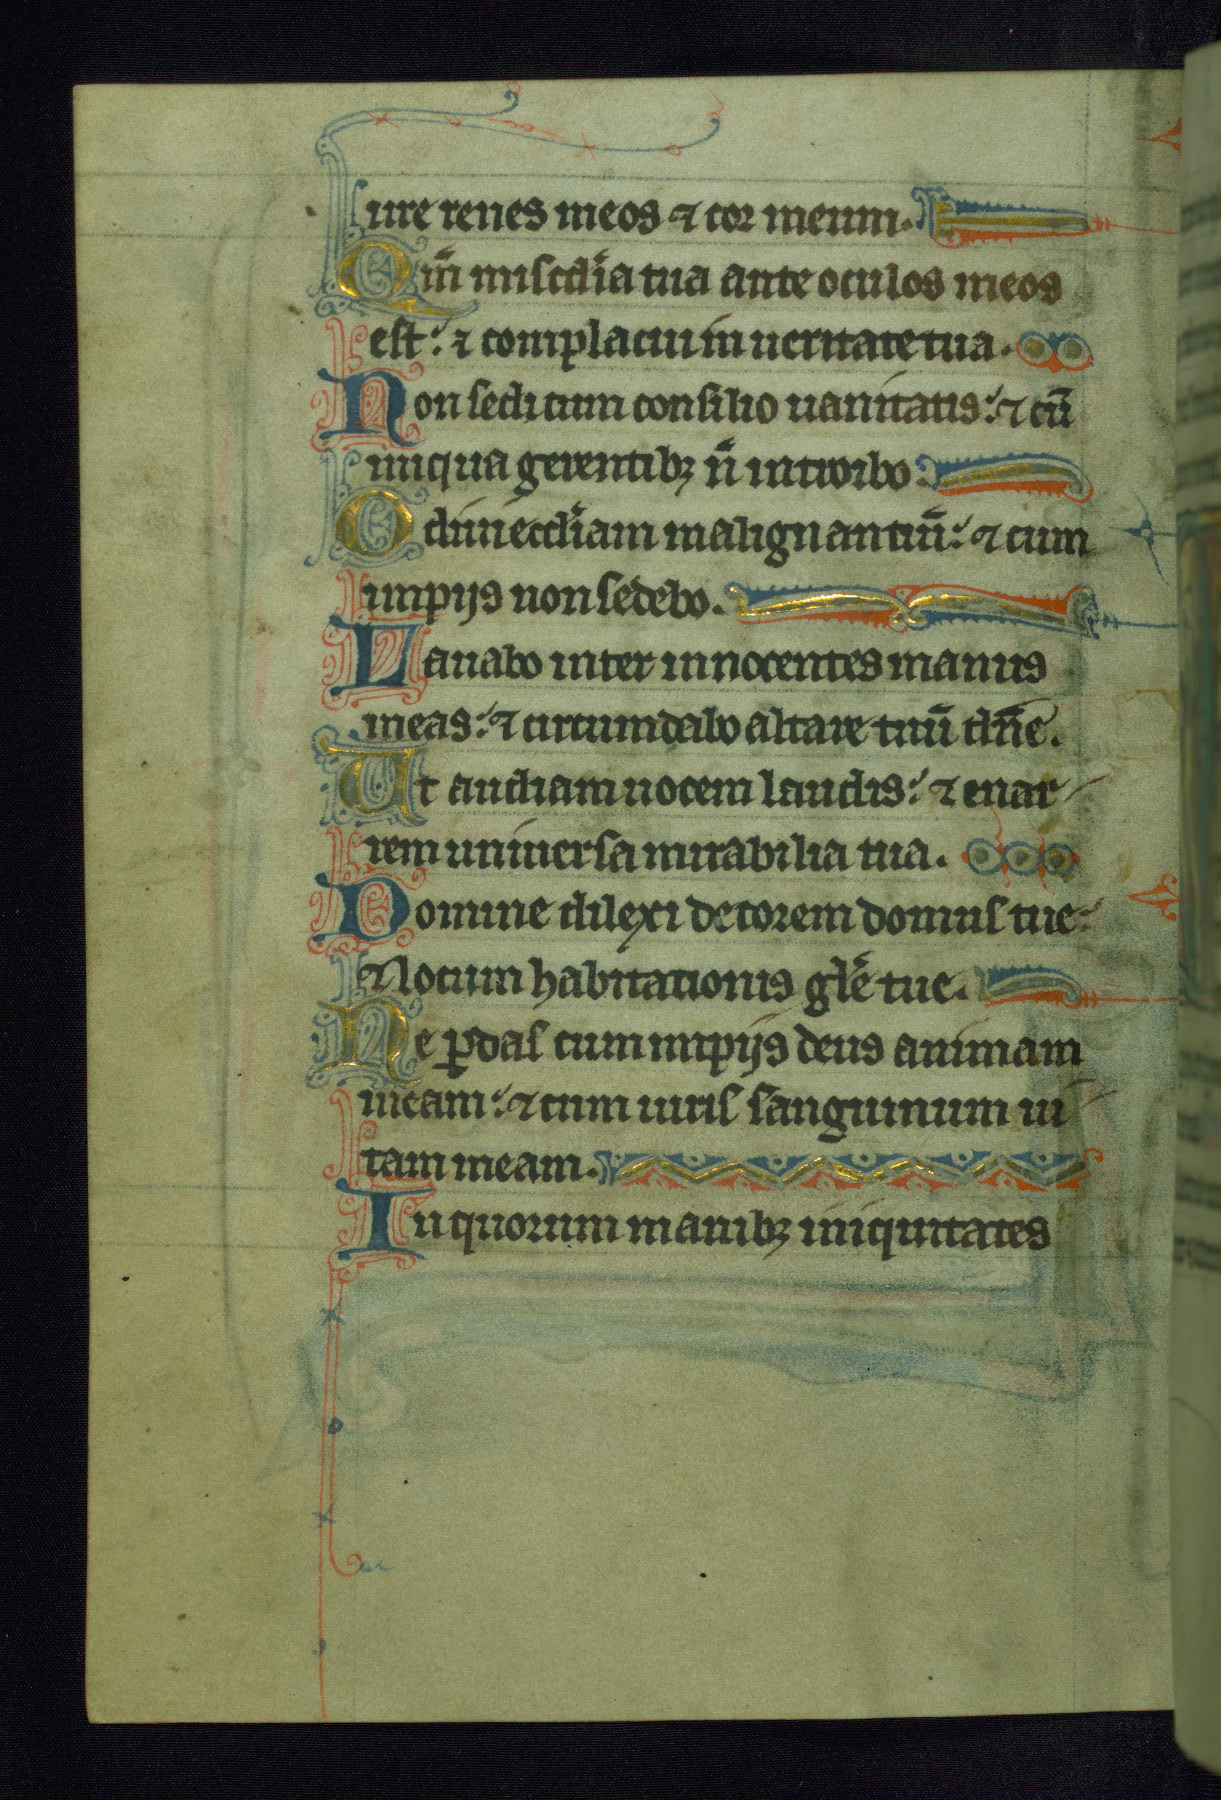 ure renes meos ⁊ cor meum.
Qm̄ miscd̄ia tua ante oculos meos
est: ⁊ complacui in ueritate tua.
Non sedi cum consilio uanitatis: ⁊ cū
iniqua gerentibꝫ n̄ introibo
Odiui eccl̄iam malignantiū: ⁊ cum
impijs non sedebo.
Lauabo inter innocentes manus
meas: ⁊ circumdabo altare tuū dn̄e.
Ut audiam uocem laudis: ⁊ enar
rem uniuersa mirabilia tua.
Domine dilexi decorem domus tue:
⁊ locum habitationis gl̄e tue.
Ne ꝑdas cum impijs deus animam
meam: ⁊ cum uiris sanguinum ui
tam meam.
In quorum manibꝫ iniquitates